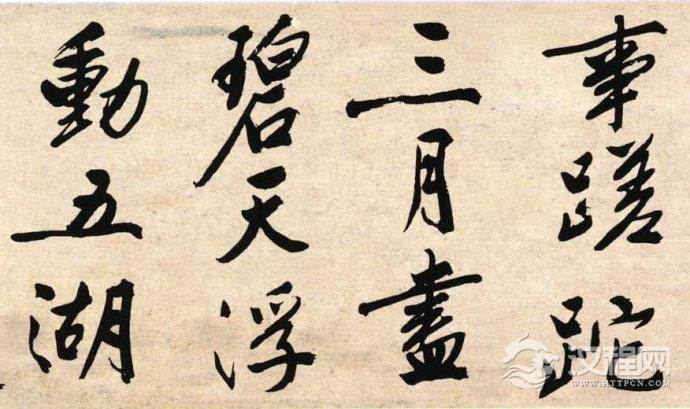 事蹉跎
三月盡
碧天浮
動五湖
汉程网
HTTPCN.COM